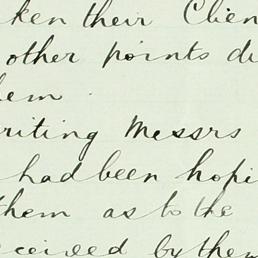 ken their Clien
other points di
hem.
riting Messrs
had been hopi
them as to the
eceived by them